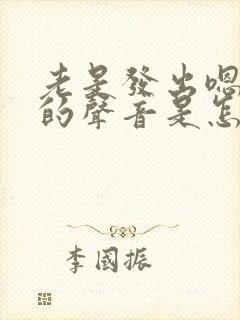 老是發出嗯
的聲音是怎
李國振